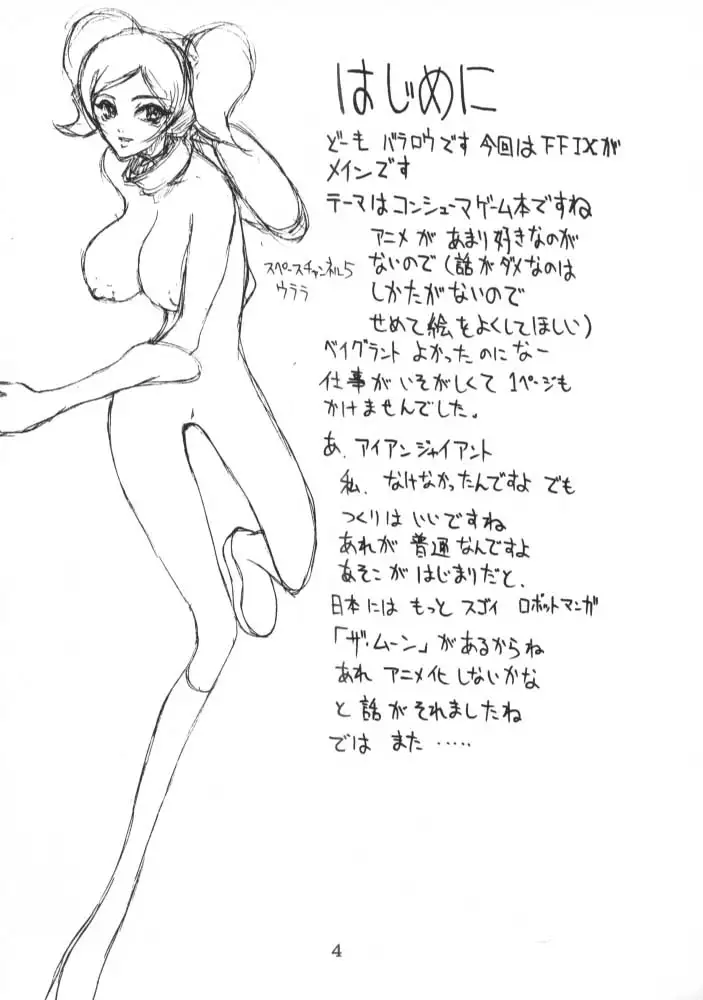 はじめに
どーも バラロウです 今回はFFIXが
メインです
テーマはコンシューマゲーム本ですね
アニメが あまり好きなのが
ないので(話がダメなのは
しかたがないので
せめて絵をよくしてほしい)
ベイグラント よかったのになー
仕事がいそがしくて 1ページも
かけませんでした。
あ、アイアンジャイアント
私、なけなかったんですよ でも
つくりはいいですね
あれが 普通なんですよ
あそこが はじまりだと、
日本には もっと スゴイ ロボットマンガ
「ザ・ムーン」があるからね
あれ アニメ化しないかな
と 話がそれましたね
では また ‥‥‥
スペースチャンネル5
ウララ
4